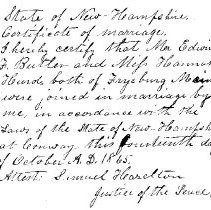 State of New Hampshire.
Certificate of marriage.
I hereby certify that Mr. Edwin
F. Butler and Miss Hannah
Hurd, both of Fryeburg Maine
were joined in marriage by
me, in accordance with the
Laws of the State of New Hampsh
at Conway this fourteenth da
of October A.D. 1865.
Attest. Samuel Hazelton
Justice of the Peace.